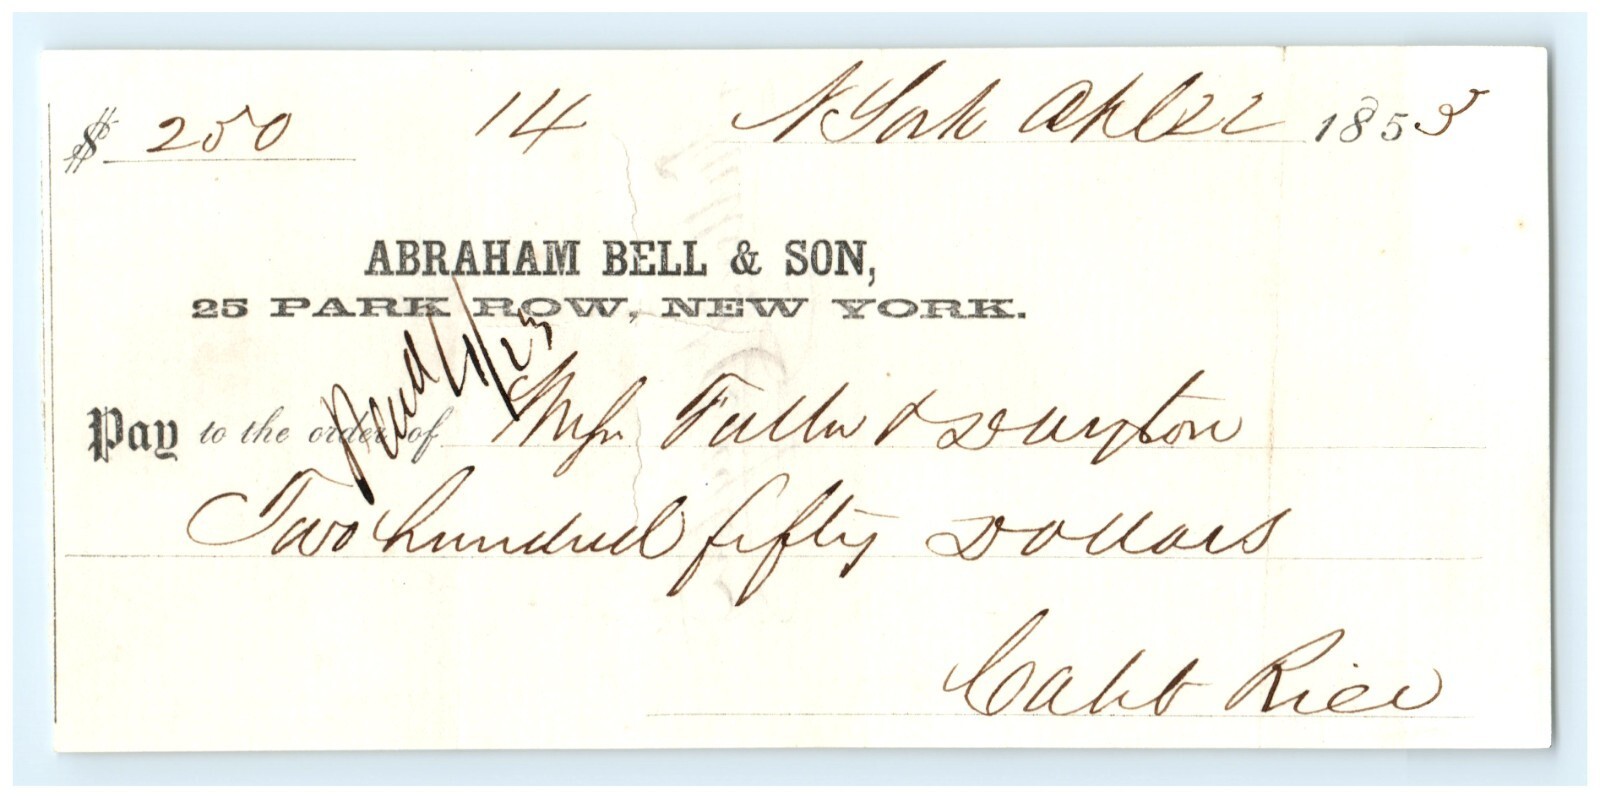 $ 250 14 N York Apl 22 1853
ABRAHAM BELL & SON,
25 PARK ROW, NEW YORK.
Pay to the order of Messrs Fuller & Dayton
Two hundred fifty Dollars
Caleb Rice